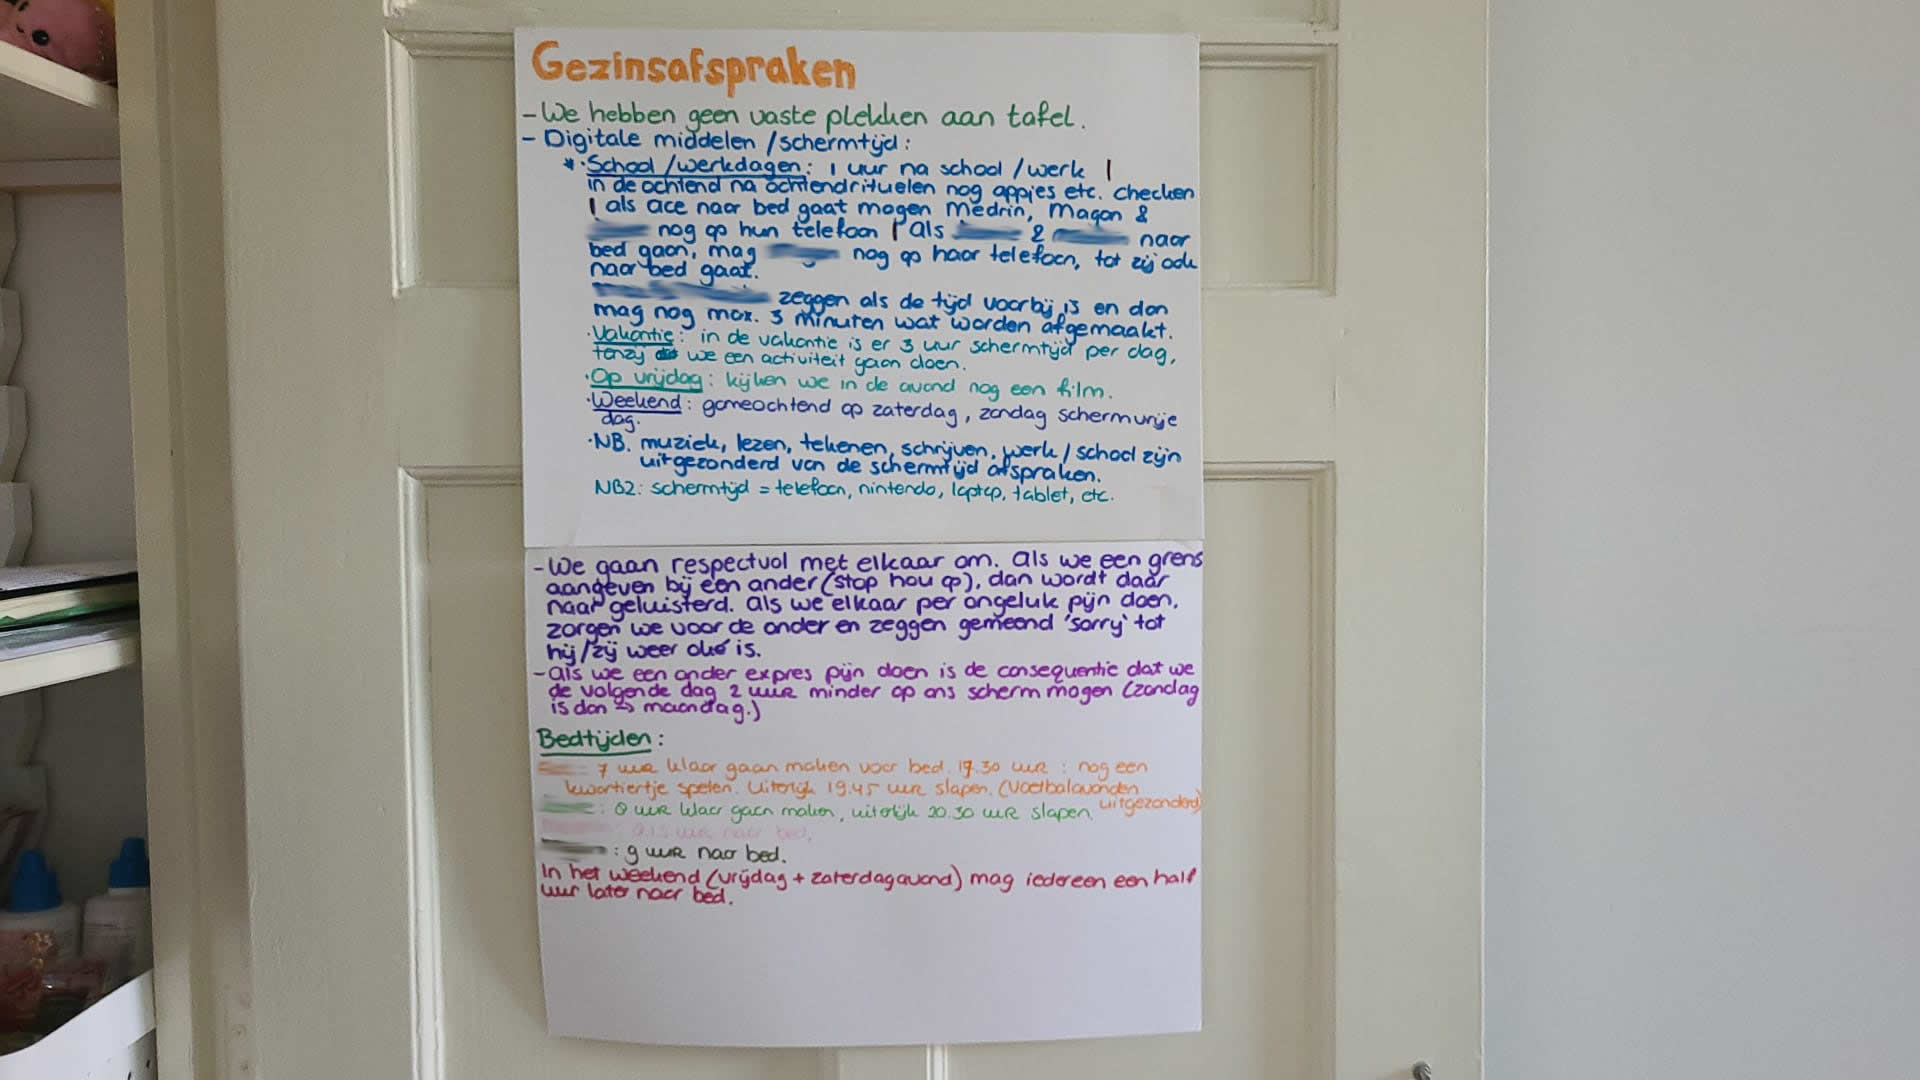 Gezinsafspraken
- We hebben geen vaste plekken aan tafel.
- Digitale middelen / schermtijd:
* · School / werkdagen: 1 uur na school / werk |
in de ochtend na ochtendrituelen nog appjes etc. checken
| als ace naar bed gaat mogen Medrin, Magon &
nog op hun telefoon | Als & naar
bed gaan, mag nog op haar telefoon, tot zij ook
naar bed gaat.
zeggen als de tijd voorbij is en dan
mag nog max. 3 minuten wat worden afgemaakt.
· Vakantie: in de vakantie is er 3 uur schermtijd per dag,
tenzij we een activiteit gaan doen.
· Op vrijdag: kijken we in de avond nog een film.
· Weekend: gameochtend op zaterdag, zondag schermvrije
dag.
· NB. muziek, lezen, tekenen, schrijven, werk / school zijn
uitgezonderd van de schermtijd afspraken.
NB2: schermtijd = telefoon, nintendo, laptop, tablet, etc.
- We gaan respectvol met elkaar om. Als we een grens
aangeven bij een ander (stop hou op), dan wordt daar
naar geluisterd. Als we elkaar per ongeluk pijn doen,
zorgen we voor de ander en zeggen gemeend 'sorry' tot
hij / zij weer oké is.
- Als we een ander expres pijn doen is de consequentie dat we
de volgende dag 2 uur minder op ons scherm mogen (zondag
is dan → maandag.)
Bedtijden:
: 7 uur klaar gaan maken voor bed. 19.30 uur : nog een
kwartiertje spelen. Uiterlijk 19.45 uur slapen. (Voetbalavonden
uitgezonderd)
: 8 uur klaar gaan maken, uiterlijk 20.30 uur slapen.
: uur naar bed.
: 9 uur naar bed.
In het weekend (vrijdag + zaterdagavond) mag iedereen een half
uur later naar bed.